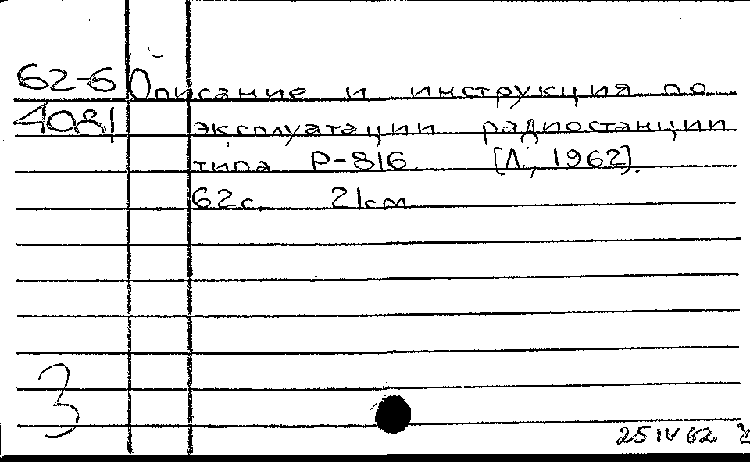 62-6 Описание и инструкция по
4081 эксплуатации радиостанции
типа Р-816. [Л, 1962].
62с. 21см
3
25 IV 62